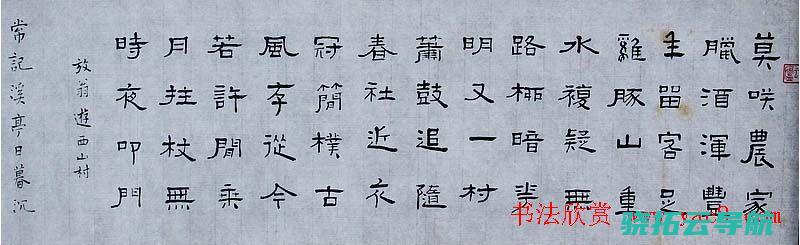 莫咲農家
臘酒渾豐
年留客足
雞豚山重
水複疑無
路柳暗花
明又一村
蕭鼓追隨
春社近衣
冠簡樸古
風存從今
若許閒乘
月拄杖無
時夜叩門
放翁遊西山村
常記溪亭日暮沉
书法欣赏
骁拓云导航